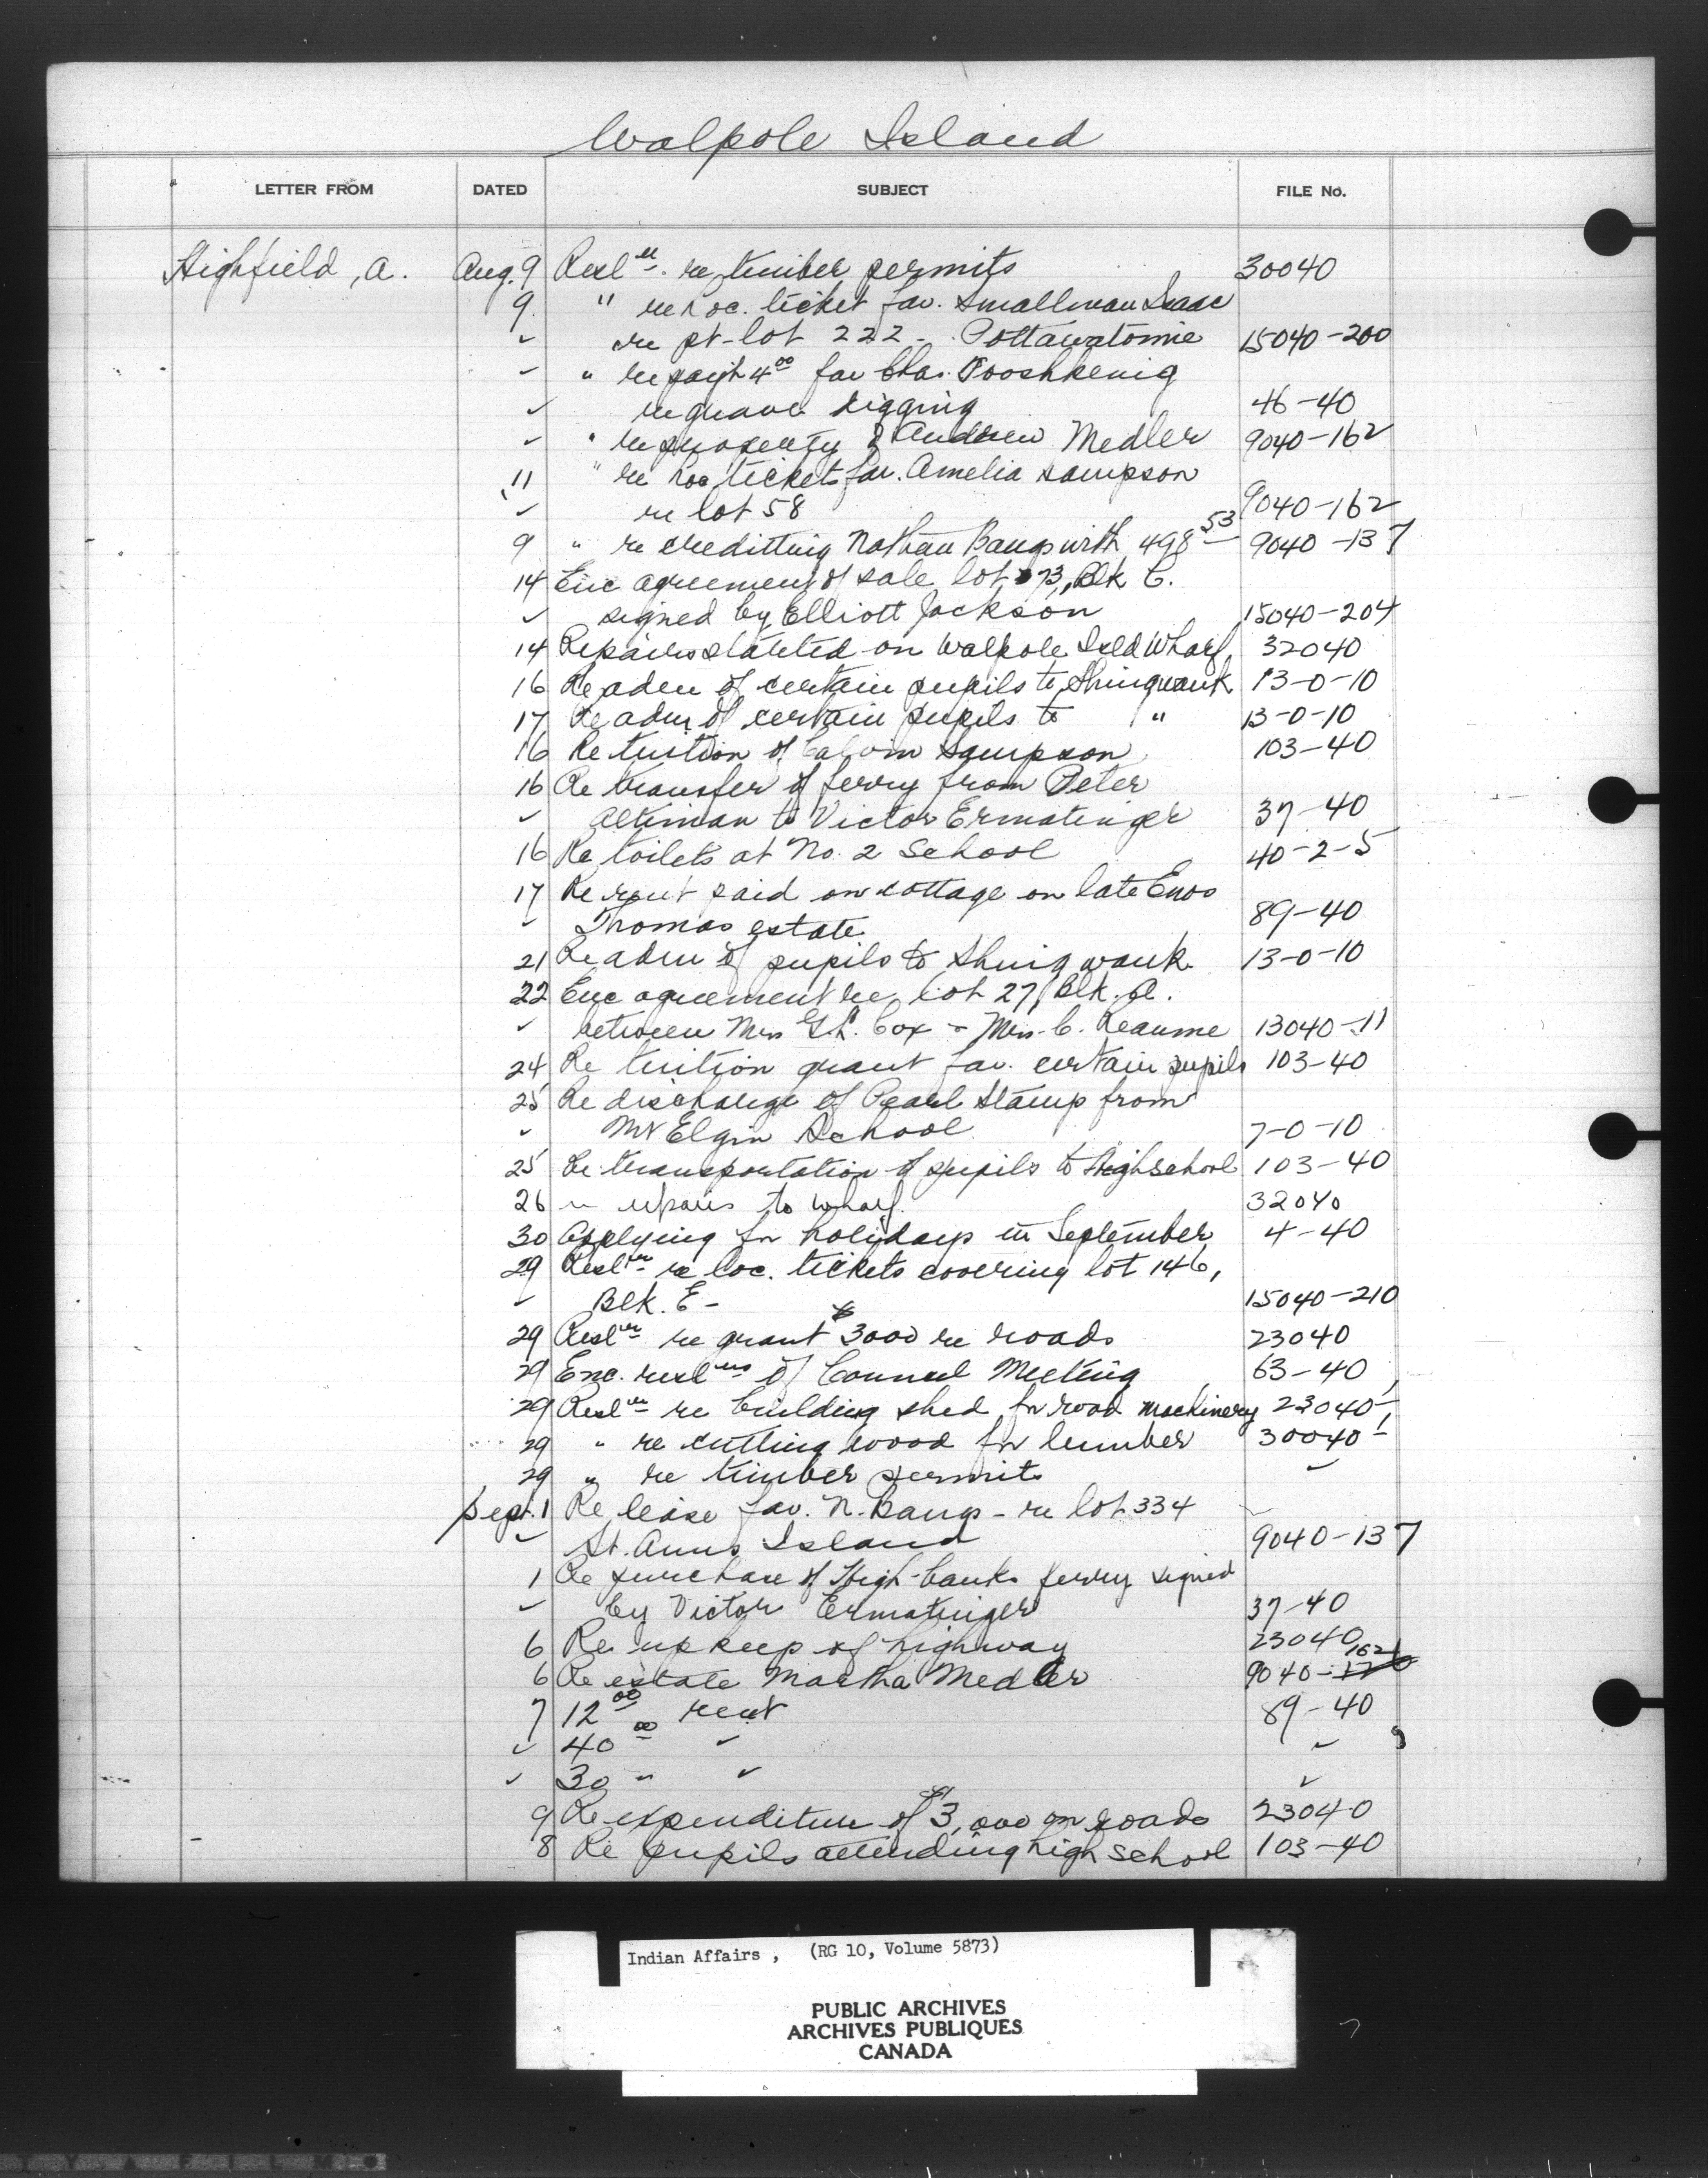 Walpole Island
LETTER FROM DATED SUBJECT FILE No.
Highfield, A. Aug. 9 Resln. re timber permits 30040
9 " re loc. ticket fav. Smallman Isaac
" re pt-lot 222 - Pottawatomie 15040-200
" " re pay't 4 00 fav Chas. Pooshkenig
" re grave digging 46-40
" " re property of Andrew Medler 9040-162
11 " re loc ticket fav. Amelia Sampson
" re lot 58 9040-162
9 " re creditting Nathan Bangs with 498 53 9040-137
14 Enc agreement of sale lot 73, Blk C.
" signed by Elliott Jackson 15040-204
14 Repairs started on Walpole Isld Wharf 32040
16 Re adm of certain pupils to Shingwauk 13-0-10
17 Re adm of certain pupils to " 13-0-10
16 Re tuition of Calvin Sampson 103-40
16 Re transfer of ferry from Peter
" Altiman to Victor Ermatinger 37-40
16 Re toilets at No. 2 School 40-2-5
17 Re rent paid on cottage on late Enos
" Thomas estate 89-40
21 Re adm of pupils to Shingwauk 13-0-10
22 Enc agreement re lot 27, Blk. A.
" between Mrs Cox & Mrs. C. Reaume 13040-11
24 Re tuition grant fav. certain pupils 103-40
25 Re discharge of Pearl Stamp from
" Mt Elgin School 7-0-10
25 Re transportation of pupils to Highschool 103-40
26 " repairs to wharf 32040
30 Applying for holidays in September 4-40
29 Resln re loc. tickets covering lot 146,
" Blk. E - 15040-210
29 Resln re grant $3000 re roads 23040
29 Enc. reslns of Council Meeting 63-40
29 Resln re building shed for road machinery 23040
29 " re cutting wood for lumber 30040
29 " re timber permits "
Sept. 1 Re lease fav. N. Bangs - re lot 334
" St. Anns Island 9040-137
1 Re purchase of High-banks ferry signed
" by Victor Ermatinger 37-40
6 Re upkeep of highway 23040
6 Re estate Martha Medler 9040-162
7 12 00 rent 89-40
" 40 00 " "
" 30 " " "
9 Re expenditure of $3,000 on roads 23040
8 Re pupils attending high school 103-40
Indian Affairs, (RG 10, Volume 5873)
PUBLIC ARCHIVES
ARCHIVES PUBLIQUES
CANADA